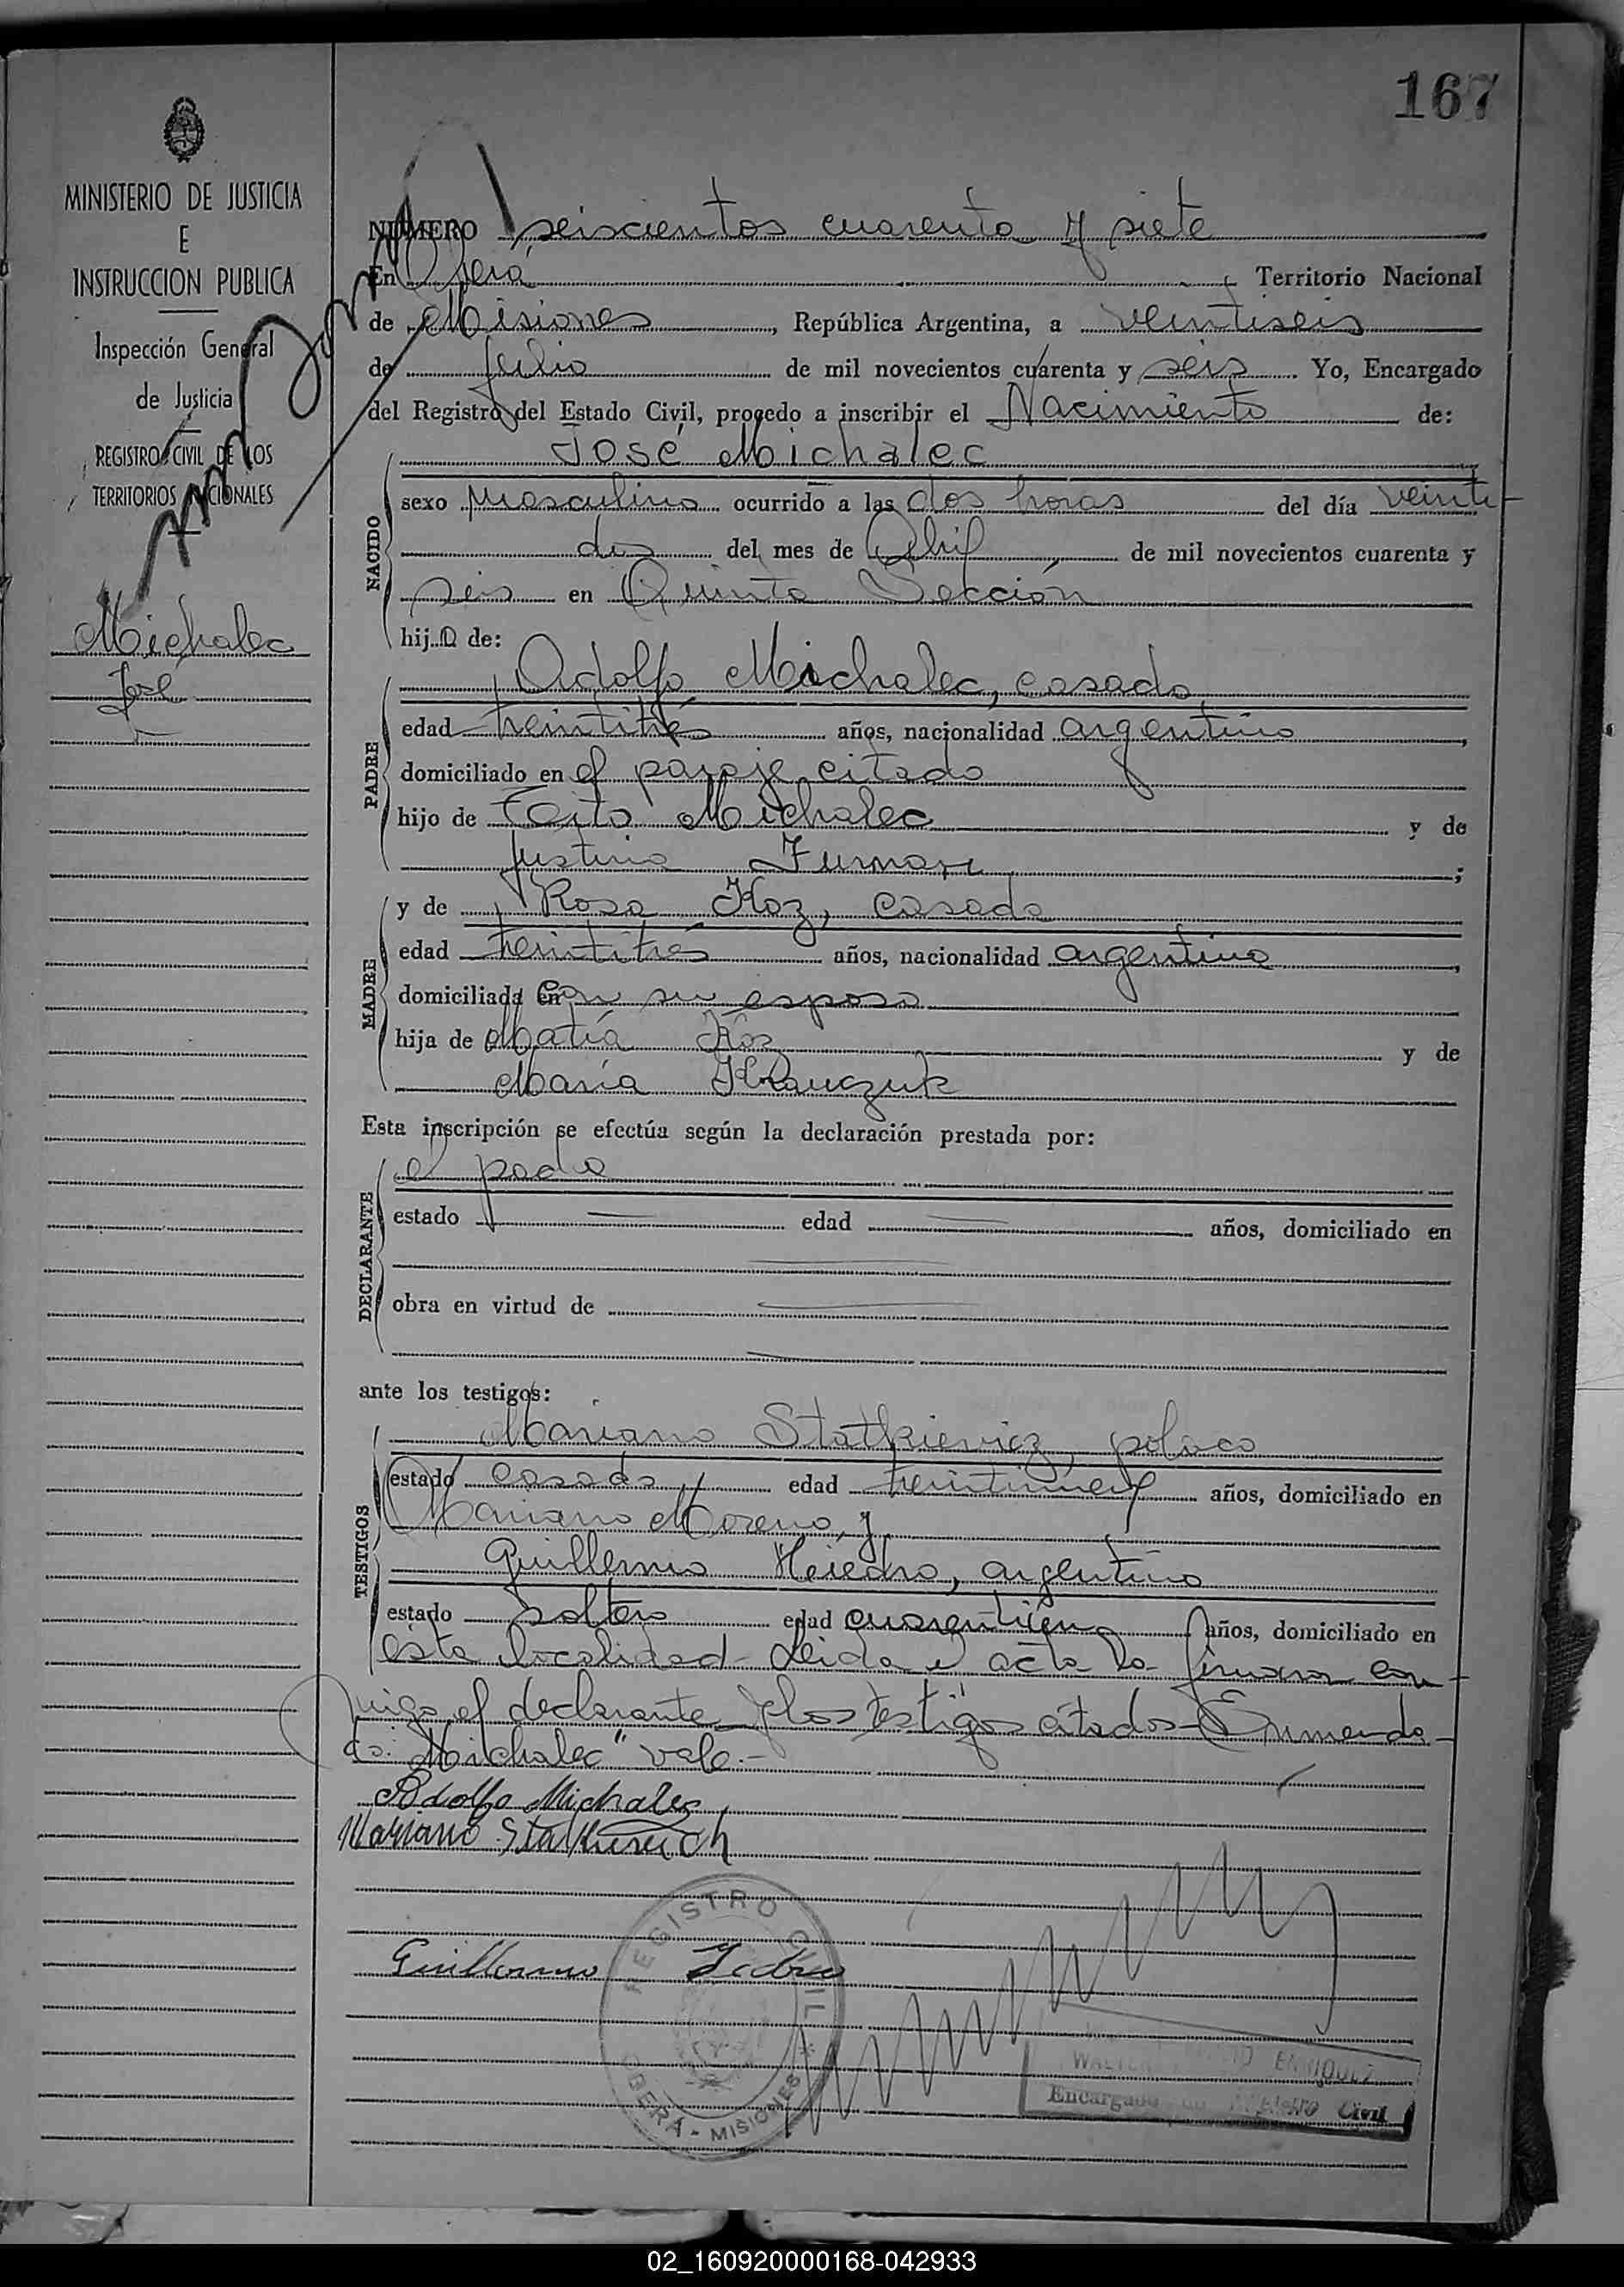 167
MINISTERIO DE JUSTICIA
E
INSTRUCCION PUBLICA
Inspección General
de Justicia
REGISTRO CIVIL DE LOS
TERRITORIOS NACIONALES
Michalec
José
NUMERO seiscientos cuarenta y siete
En Oberá Territorio Nacional
de Misiones, República Argentina, a veintiseis
de Julio de mil novecientos cuarenta y seis. Yo, Encargado
del Registro del Estado Civil, procedo a inscribir el Nacimiento de:
José Michalec
NACIDO
sexo masculino ocurrido a las dos horas del día veinti-
dos del mes de Abril de mil novecientos cuarenta y
seis en Quinta Sección
hijo de:
Adolfo Michalec, casado
PADRE
edad treintitrés años, nacionalidad argentino,
domiciliado en el paraje citado
hijo de Michalec y de
Justina ;
y de Rosa Koz, casada
MADRE
edad treintitrés años, nacionalidad argentina,
domiciliada en con su esposo
hija de Matía Kos y de
María
Esta inscripción se efectúa según la declaración prestada por:
el padre
DECLARANTE
estado edad años, domiciliado en
obra en virtud de
ante los testigos:
Mariano Statkievicz, polaco
TESTIGOS
estado casado, edad treintinueve años, domiciliado en
Mariano Moreno, y
Guillermo argentino
estado soltero edad años, domiciliado en
esta localidad - Leida el acta la firman con-
migo, el declarante y los testigos citados - Enmenda-
do: "Michalec" vale.-
Adolfo Michalec
Mariano
Guillermo
REGISTRO CIVIL
OBERÁ - MISIONES
ENRIQUEZ
Encargado Registro Civil
02_160920000168-042933